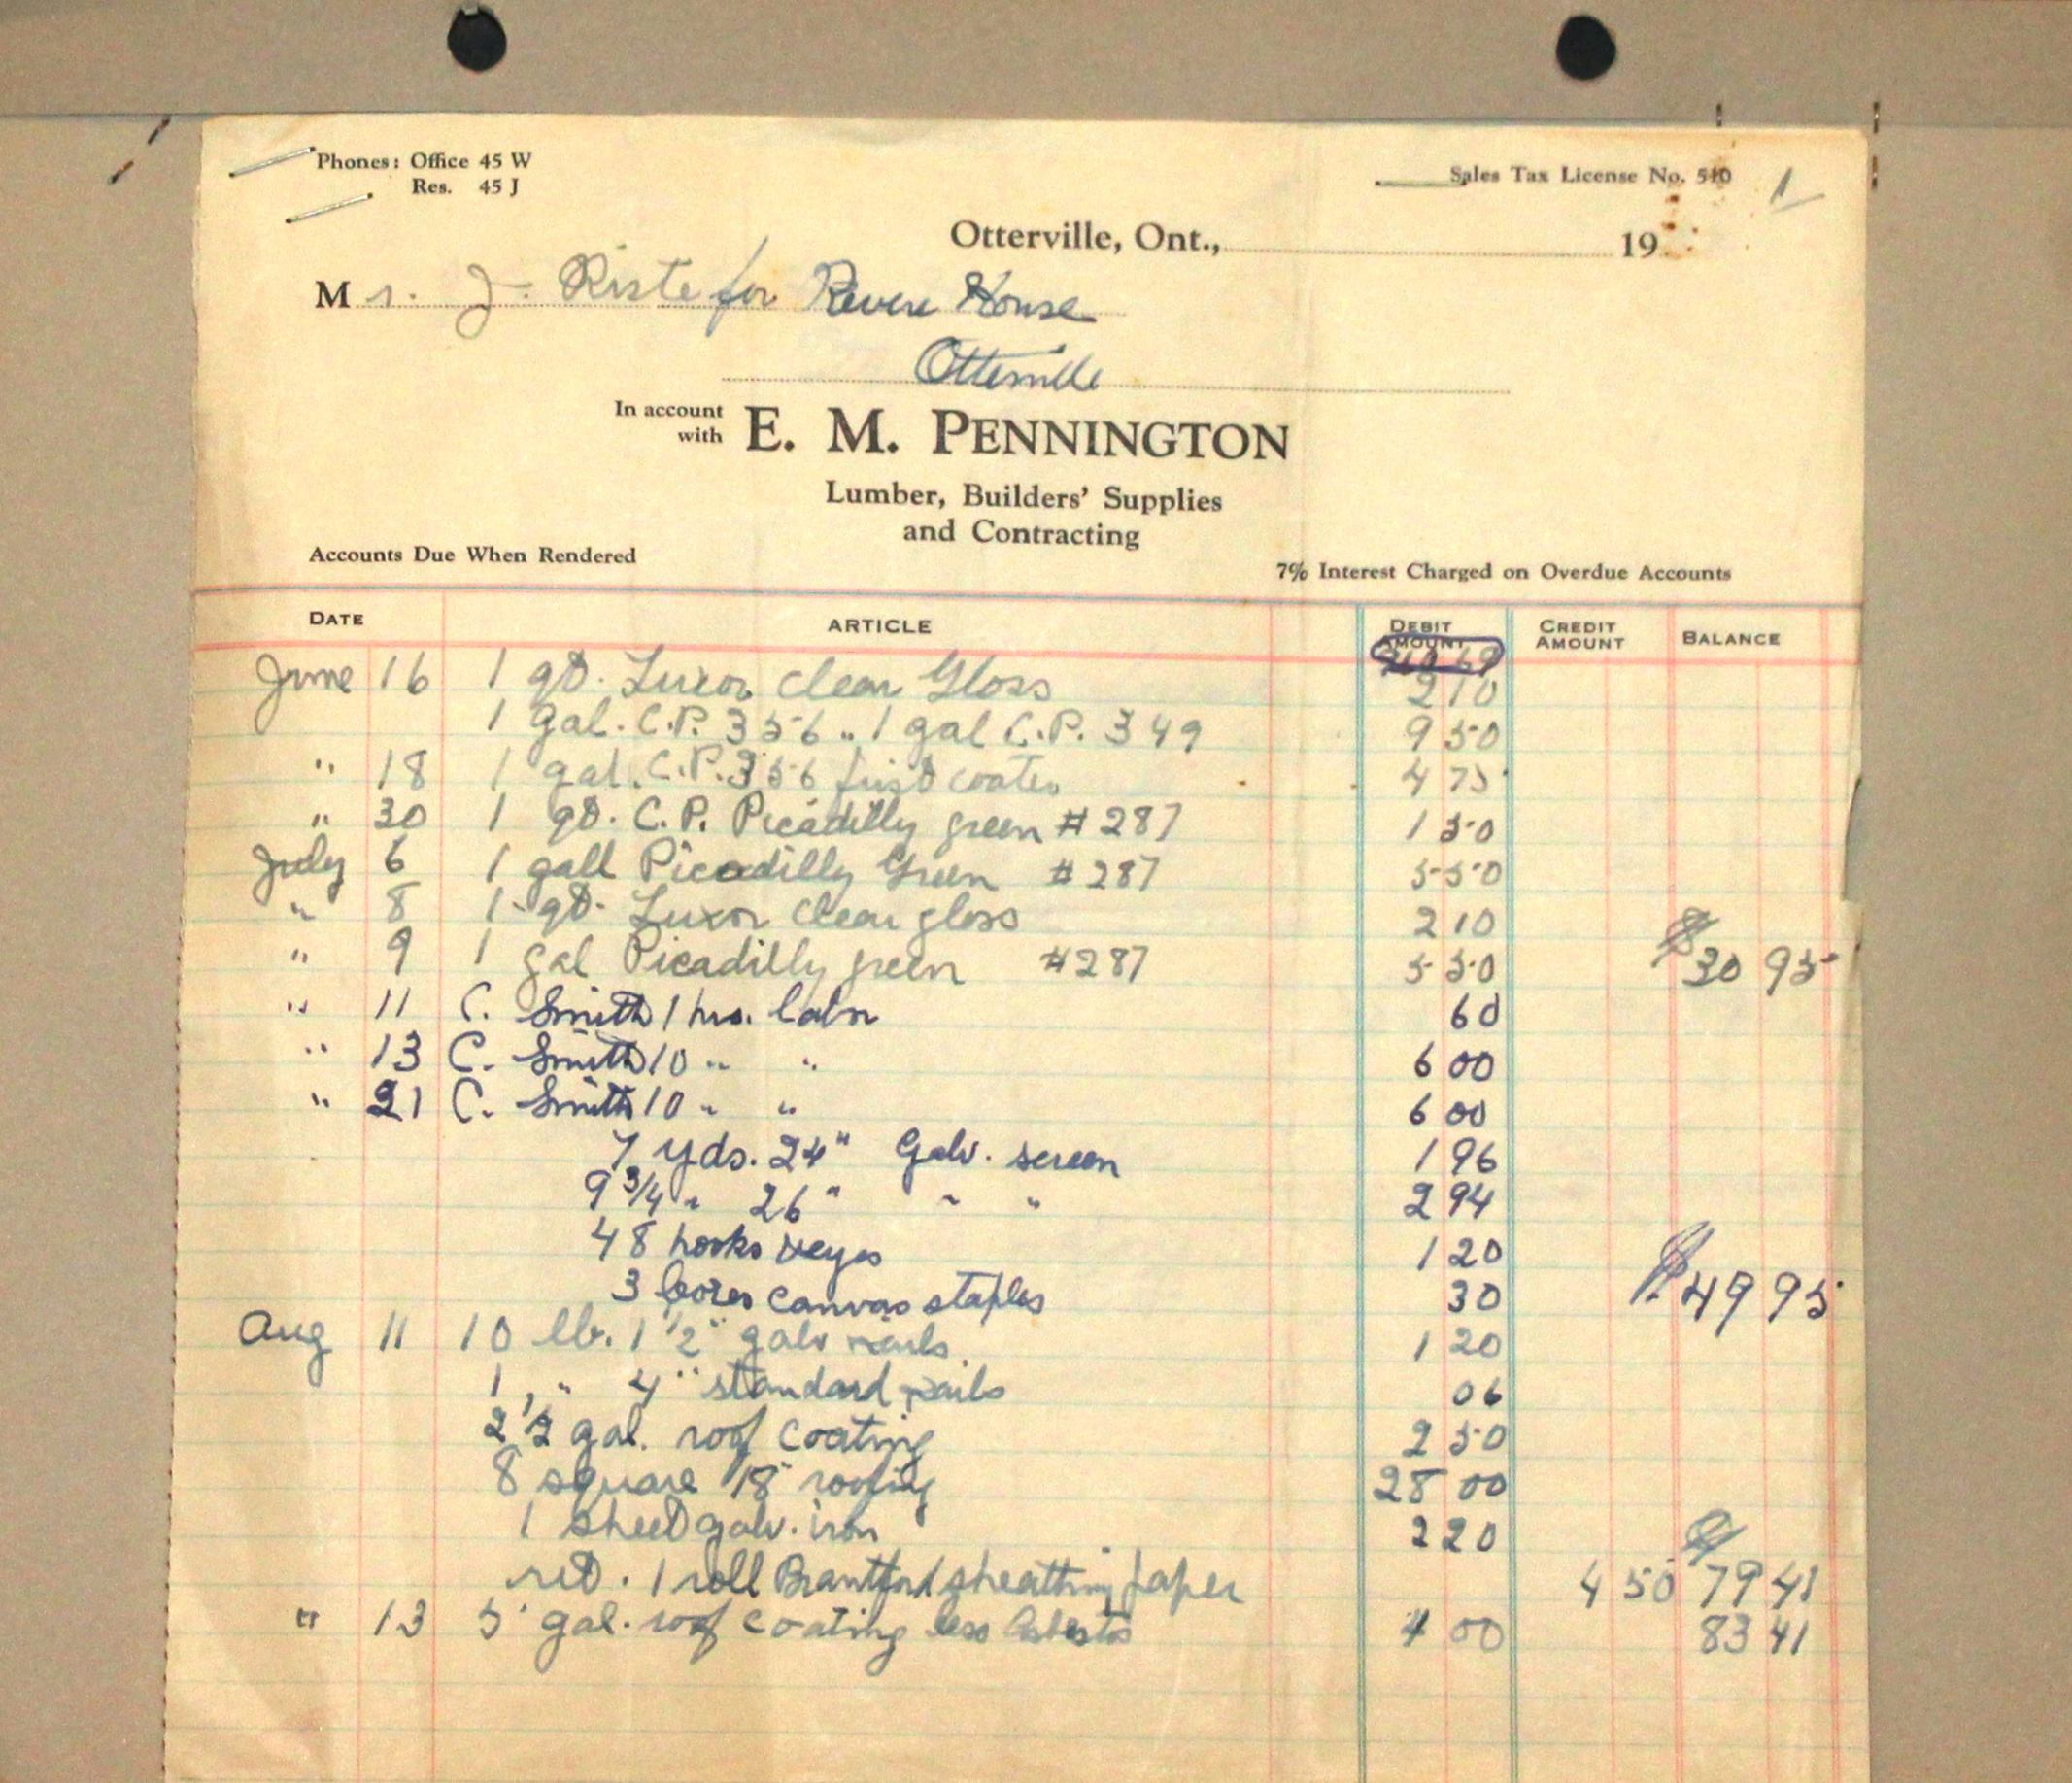 Phones: Office 45 W
Res. 45 J
Sales Tax License No. 510
1
Otterville, Ont., 19
Mr. J. Riste for Revere House
Otterville
In account with E. M. PENNINGTON
Lumber, Builders' Supplies
and Contracting
Accounts Due When Rendered
7% Interest Charged on Overdue Accounts
DATE ARTICLE DEBIT AMOUNT CREDIT AMOUNT BALANCE
June 16 1 qt. Luxor clear Gloss 2 10
1 gal. C.P. 356 " 1 gal C.P. 349 9 50
" 18 1 gal. C.P. 356 first coater 4 75
" 30 1 qt. C.P. Picadilly green # 287 1 50
July 6 1 gall Picadilly Green # 287 5 50
" 8 1 qt. Luxor clear gloss 2 10
" 9 1 gal Picadilly green # 287 5 50 $30 95
" 11 C. Smith 1 hrs. labor 60
" 13 C. Smith 10 " " 6 00
" 21 C. Smith 10 " " 6 00
7 yds. 24" Galv. screen 1 96
9 3/4 " 26" " " 2 94
48 hooks & eyes 1 20
3 boxes canvas staples 30 $49 95
Aug 11 10 lb. 1 1/2" galv nails 1 20
1 " 4" standard nails 06
2 1/2 gal. roof coating 2 50
8 square 18" roofing 28 00
1 sheet galv. iron 2 20
ret. 1 roll Brantford sheathing paper 4 50 $79 41
" 13 5 gal. roof coating less Asbestos 4 00 83 41